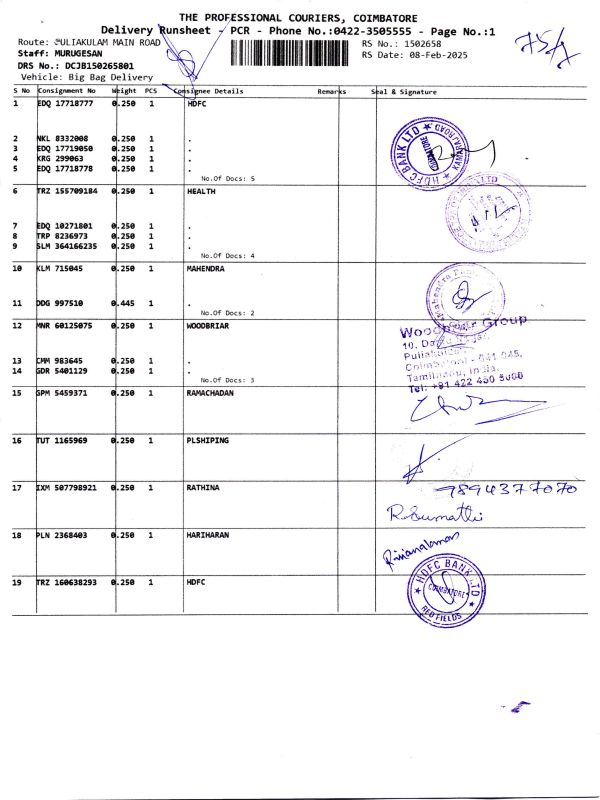 THE PROFESSIONAL COURIERS, COIMBATORE
Delivery Runsheet - PCR - Phone No.:0422-3505555 - Page No.:1
Route: PULIAKULAM MAIN ROAD
RS No.: 1502658
Staff: MURUGESAN
RS Date: 08-Feb-2025
DRS No.: DCJB150265801
Vehicle: Big Bag Delivery
S No Consignment No Weight PCS Consignee Details Remarks Seal & Signature
1 EDQ 17718777 0.250 1 HDFC
2 NKL 8332008 0.250 1 .
3 EDQ 17719050 0.250 1 .
4 KRG 299063 0.250 1 .
5 EDQ 17718778 0.250 1 .
No.Of Docs: 5
HDFC BANK LTD
COIMBATORE
KAMARAJ ROAD
6 TRZ 155709184 0.250 1 HEALTH
7 EDQ 10271801 0.250 1 .
8 TRP 8236973 0.250 1 .
9 SLM 364166235 0.250 1 .
No.Of Docs: 4
10 KLM 715045 0.250 1 MAHENDRA
11 DDG 997510 0.445 1 .
No.Of Docs: 2
12 MNR 60125075 0.250 1 WOODBRIAR
13 CMM 983645 0.250 1 .
14 GDR 5401129 0.250 1 .
No.Of Docs: 3
Woodbriar Group
Coimbatore - 641 045.
Tamilnadu, India.
Tel: +91 422 450 5000
15 SPM 5459371 0.250 1 RAMACHADAN
16 TUT 1165969 0.250 1 PLSHIPING
17 IXM 507798921 0.250 1 RATHINA
9894377070
R. Sumathi
18 PLN 2368403 0.250 1 HARIHARAN
19 TRZ 160638293 0.250 1 HDFC
HDFC BANK LTD
COIMBATORE
RED FIELDS